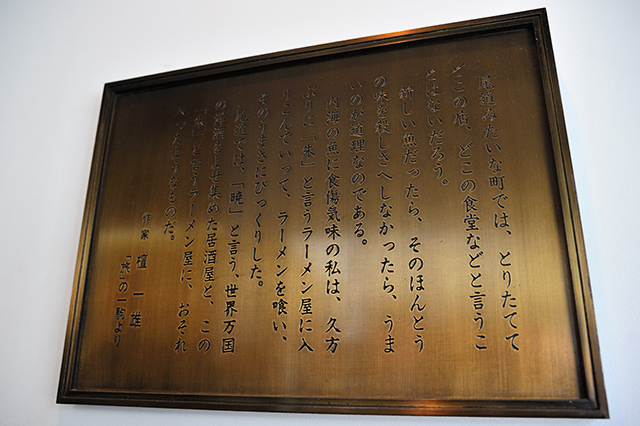 尾道みたいな町では、とりたてて
どこの店、どこの食堂などと言うこ
とはないだろう。
新しい魚だったら、そのほんとう
の味を殺しさへしなかったら、うま
いのが道理なのである。
内海の魚に食傷気味の私は、久方
ぶりに「朱」と言うラーメン屋に入
りこんでいって、ラーメンを喰い、
そのうまさにびっくりした。
尾道では、「暁」と言う、世界万国
の酒を寄せ集めた居酒屋と、この
「朱」と言うラーメン屋に、おそれ
いったようなものだ。
作家 檀 一雄
の一駒より